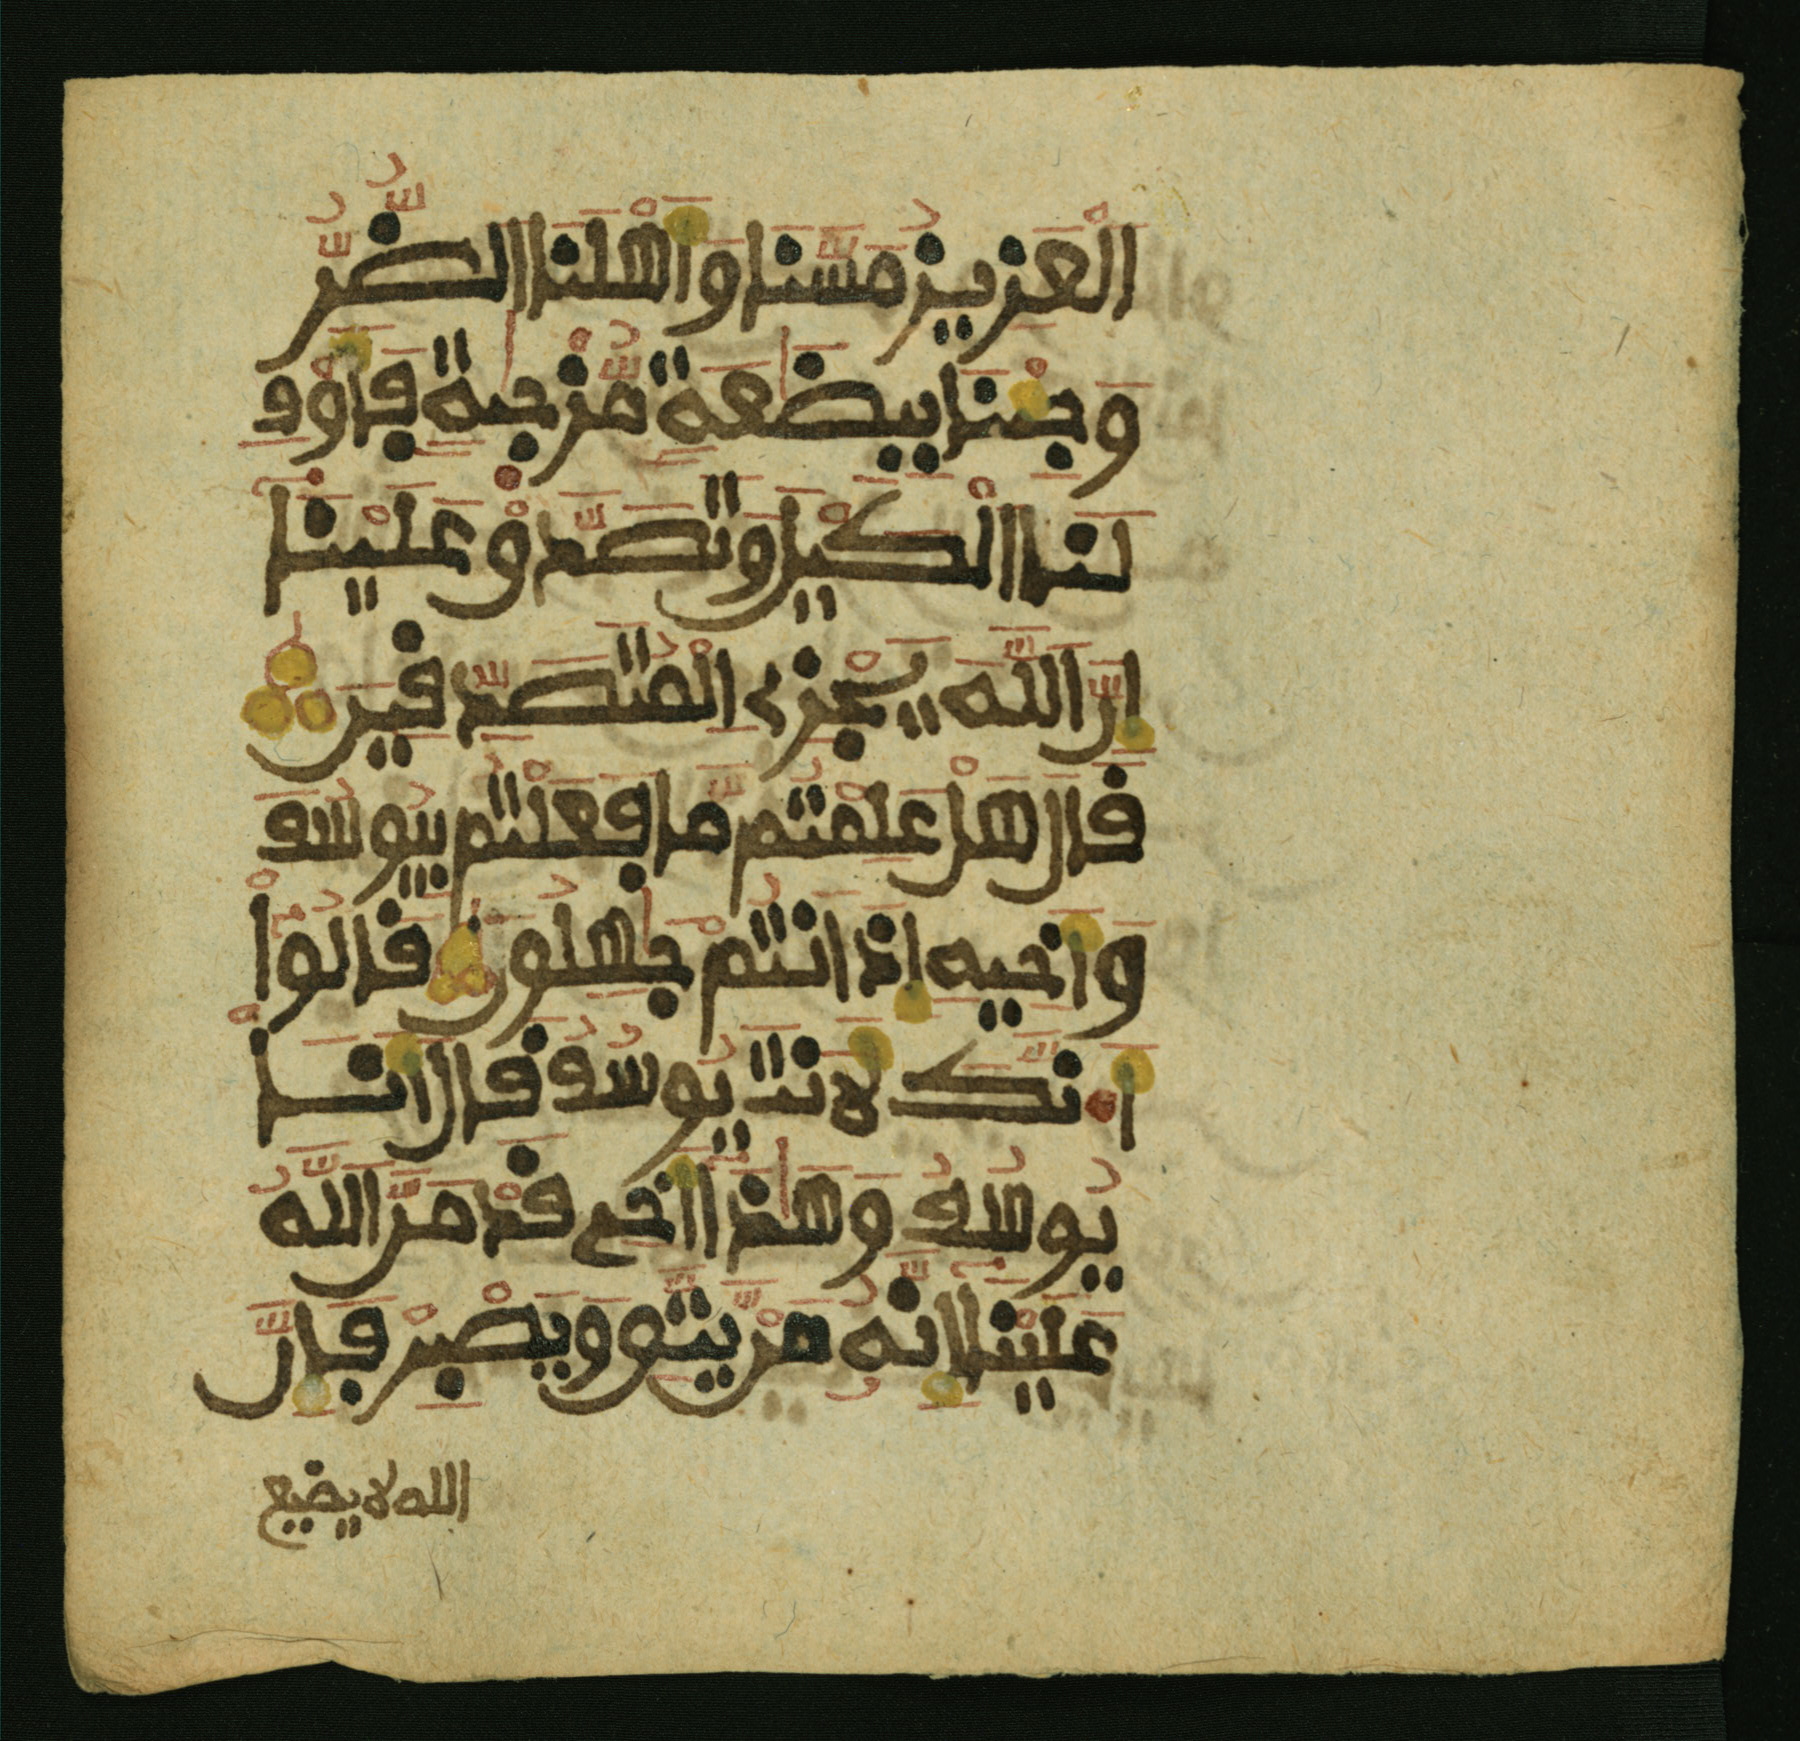 الْعَزِيزُ مَسَّنَا وَأَهْلَنَا الضُّرُّ
وَجِئْنَا بِبِضَٰعَةٍ مُّزْجَىٰةٍ فَأَوْفِ
لَنَا الْكَيْلَ وَتَصَدَّقْ عَلَيْنَا
إِنَّ اللَّهَ يَجْزِي الْمُتَصَدِّقِينَ
قَالَ هَلْ عَلِمْتُم مَّا فَعَلْتُم بِيُوسُفَ
وَأَخِيهِ إِذْ أَنتُمْ جَٰهِلُونَ قَالُوا
أَ۟نَّكَ لَأَنتَ يُوسُفُ قَالَ أَنَا
يُوسُفُ وَهَٰذَا أَخِي قَدْ مَنَّ اللَّهُ
عَلَيْنَا إِنَّهُ مَن يَتَّقِ وَيَصْبِرْ فَإِنَّ
الله لا يضيع